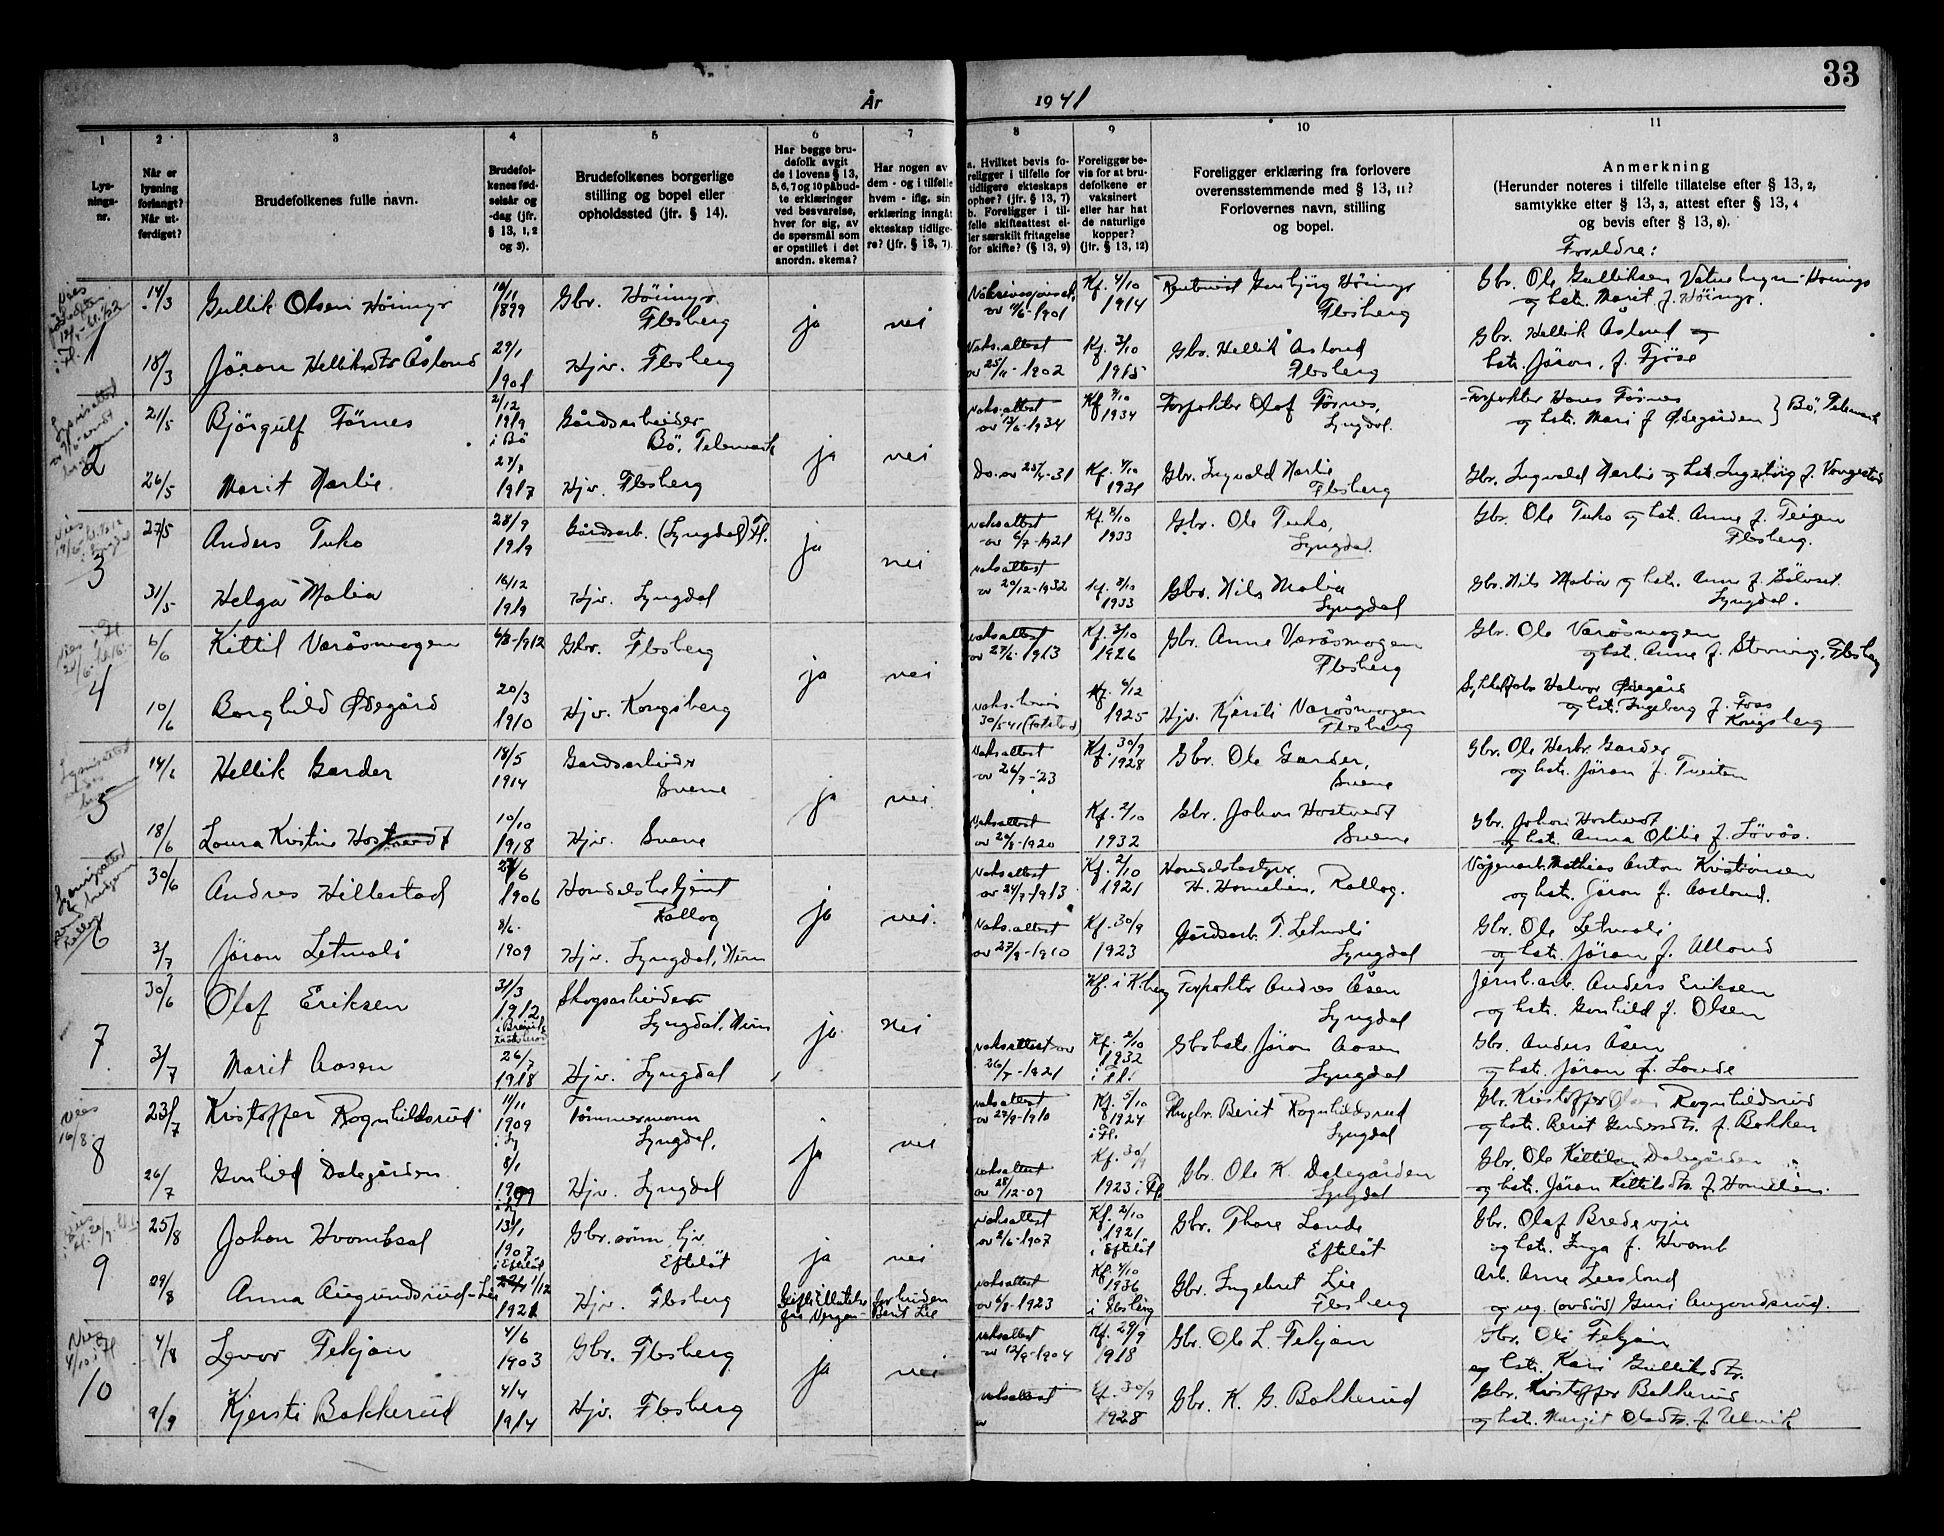 33
År 1941
1 2 3 4 5 6 7 8 9 10 11
Lys-
nings-
nr.
Når er
lysning
forlangt?
Når ut-
ferdiget?
Brudefolkenes fulle navn.
Brudefol-
kenes fød-
selsår og
-dag (jfr.
§ 13, 1, 2
og 3).
Brudefolkenes borgerlige
stilling og bopel eller
opholdssted (jfr. § 14).
Har begge bru-
defolk avgit
de i lovens § 13,
5, 6, 7 og 10 påbud-
te erklæringer
ved besvarelse,
hver for sig, av
de spørsmål som
er opstillet i det
anordn. skema?
Har nogen av
dem - og i tilfelle
hvem - iflg. sin
erklæring inngått
ekteskap tidlige-
re? (jfr. § 13, 7).
a. Hvilket bevis fo-
religger i tilfelle for
tidligere ekteskaps
ophør? (jfr. § 13, 7)
b. Foreligger i til-
felle skifteattest el-
ler særskilt fritagelse
for skifte? (§ 13, 9)
Foreligger be-
vis for at bru-
defolkene er
vaksinert
eller har hat
de naturlige
kopper?
(jfr. § 13, 12)
Foreligger erklæring fra forlovere
overensstemmende med § 13, 11?
Forlovernes navn, stilling
og bopel.
Anmerkning
(Herunder noteres i tilfelle tillatelse efter § 13, 2,
samtykke efter § 13, 3, attest efter § 13, 4
og bevis efter § 13, 8).
Foreldre:
1
14/3 Gullik Olsen Höinyr 1899 Gbr. Höinyr
Flesberg ja nei 1901 Kf. 4/10 1914 Gunbjörg Höinyr
Flesberg Gbr. Ole Gulliksen
og hst. Marit f. Höinyr.
18/3 Jöran Helliksdtr Åslund 29/1 1901 Hjv. Flesberg Vaks.attest av 25/11-1902 Kf. 3/10 1915 Gbr. Hellik Åslund
Flesberg Gbr. Hellik Åslund og
hst. Jöran, f. Fjöse
2
21/5 Bjørgulf Førnes 2/12 1919 i Bø Gårdsarbeider
Bø, Telemark ja nei Vaks.attest av 12/6-1934 Kf. 1934 Forpakter Olaf Førnes,
Lyngdal. Forpakter Hans Førnes
og hst. Mari f. Ødegården } Bø, Telemark
26/5 Marit Narlie 1917 Hjv. Flesberg Do. Kf. 4/10 1931 Gbr. Ingvald Narlie
Flesberg Gbr. Ingvald Narlie og hst. Ingebjörg f. Vangestad
3
27/5 Anders Tuko 28/9 1919 Gårdsarb. (Lyngdal) Fl. ja nei Vaks.attest av 6/7-1921 Kf. 8/10 1933 Gbr. Ole Tuko,
Lyngdal. Gbr. Ole Tuko og hst. Anne f. Teigen
Flesberg.
31/5 Helga Mobia 16/12 1919 Hjv. Lyngdal Vaks.attest av 20/12-1932 Kf. 8/10 1933 Gbr. Nils Mobia
Lyngdal Gbr. Nils Mobia og hst. Anne f.
Lyngdal.
4
6/6 Kittil Varåsmogen 1912 Gbr. Flesberg ja nei Vaks.attest av 27/6-1913 Kf. 3/10 1926 Gbr. Anne Varåsmogen
Flesberg Gbr. Ole Varåsmogen
og hst. Anne f. Stevning, Flesberg
10/6 Borghild Ødegård 20/3 1910 Hjv. Kongsberg Kf. 6/12 1925 Hjv. Kjersti Varåsmogen
Flesberg Halvor Ødegård
og hst. Ingeborg f. Foss
Kongsberg
5
14/6 Hellik Garder 18/5 1914 Gardsarbeider
Svene ja nei Vaks.attest av 26/7-23 Kf. 30/9 1928 Gbr. Ole Garder,
Svene Gbr. Ole Herbr. Garder
og hst. Jöran f. Tveiten
18/6 Laura Kristine Hostvedt 10/10 1918 Hjv. Svene Vaks.attest av 20/8-1920 Kf. 2/10 1932 Gbr. Johan Hostvedt
Svene Gbr. Johan Hostvedt
og hst. Anna Otilie f. Lövås.
6
30/6 Andres Hillestad 1906 Handelsbetjent
Rollag ja nei. Vaks.attest av 24/7-1913 Kf. 2/10 1921 Handelsbestyrer
H. Homelien, Rollag. Mathias Anton Kristiansen
og hst. Jöran f. Aaslund.
3/7 Jöran Letmoli 8/6 1909 Hjv. Lyngdal, Num Vaks.attest av 27/9-1910 Kf. 30/9 1923 Gårdsarb. T. Letmoli
Lyngdal Gbr. Ole Letmoli
og hst. Jöran f. Allund
7
30/6 Olaf Eriksen 31/3 1912 Skogsarbeider
Lyngdal, Num ja nei Kf. i K.berg Forpakter Andres Åsen
Lyngdal Jernb.arb. Anders Eriksen
og hst. Gunhild f. Olsen
3/7 Marit Aasen 26/7 1918 Hjv. Lyngdal Vaksattest av 26/7-1921 Kf. 2/10 1932 i Fl. Gbr.hst. Jöran Aasen
Lyngdal Gbr. Anders Åsen
og hst. Jöran f. Lande
8
23/7 Kristoffer Rognhildsrud 11/11 1909 Tömmermann
Lyngdal, ja nei Vaksattest av 27/9-1910 Kf. 5/10 1924 i Fl. Berit Rognhildsrud
Lyngdal Gbr. Kristoffer Olsen Rognhildsrud
og hst. Berit Gundersdtr. f. Bakken
26/7 Gunhild Dalegården 8/1 1909 Hjv. Lyngdal Vaksattest av 28/12-09 Kf. 30/9 1923 i Fl. Gbr. Ole K. Dalegården
Lyngdal Gbr. Ole Kittilsen Dalegården
og hst. Jöran Kittilsdtr. f. Homelien.
9
25/8 Johan Hvambsal 13/1 1907 i Efteløt Gbr.sönn hjv.
Efteløt ja nei Vaksattest av 2/6-1907 Kf. 2/10 1921 i Efteløt Gbr. Thore Lande
Efteløt Gbr. Olaf Bredevjie
og hst. Inga f. Hvamb
29/8 Anna Augundsrud-Lie 1/12 1921 Hjv. Flesberg Vaksattest av 6/8-1923 Kf. 4/10 1936 i Flesberg Gbr. Ingebret Lie
Flesberg Arb. Arne Leeslund
og ug. (avdød) Guri Augundsrud.
10
4/8 Levor Fekjan 4/6 1903 Gbr. Flesberg ja nei Vaksattest av 12/9-1904 Kf. 29/9 1918 Gbr. Ole L. Fekjan Gbr. Ole Fekjan
og hst. Kari Gulliksdtr.
9/9 Kjersti Bakkerud 4/4 1914 Hjv. Flesberg Vaksattest av Kf. 30/9 1928 Gbr. K. G. Bakkerud Gbr. Kristoffer Bakkerud
og hst. Margit Olsdtr. f. Ulevik